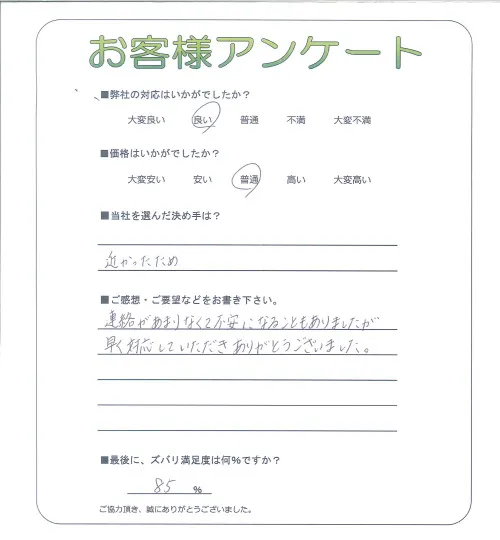 お客様アンケート
■弊社の対応はいかがでしたか?
大変良い 良い 普通 不満 大変不満
■価格はいかがでしたか?
大変安い 安い 普通 高い 大変高い
■当社を選んだ決め手は?
近かったため
■ご感想・ご要望などをお書き下さい。
連絡があまりなくて不安になることもありましたが
早く対応していただきありがとうございました。
■最後に、ズバリ満足度は何%ですか?
85 %
ご協力頂き、誠にありがとうございました。